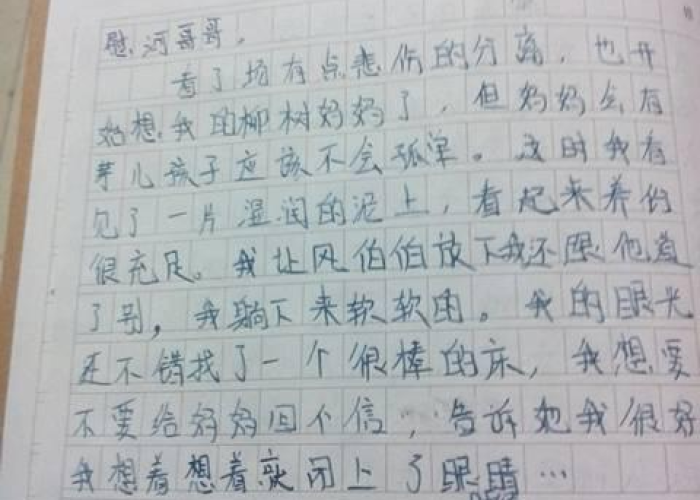 慰河哥哥。
看了场有点悲伤的分离，也开
始想我的柳树妈妈了，但妈妈会有
芽儿孩子应该不会孤单。这时我看
见了一片湿润的泥土，看起来养份
很充足。我让风伯伯放下我还跟他道
了别，我躺下来软软的。我的眼光
还不错找了一个很棒的床，我想要
不要给妈妈回个信，告诉她我很好
我想着想着就闭上了眼睛…